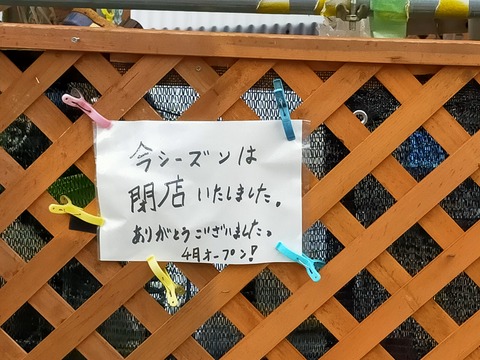 今シーズンは
閉店いたしました。
ありがとうございました。
4月オープン!